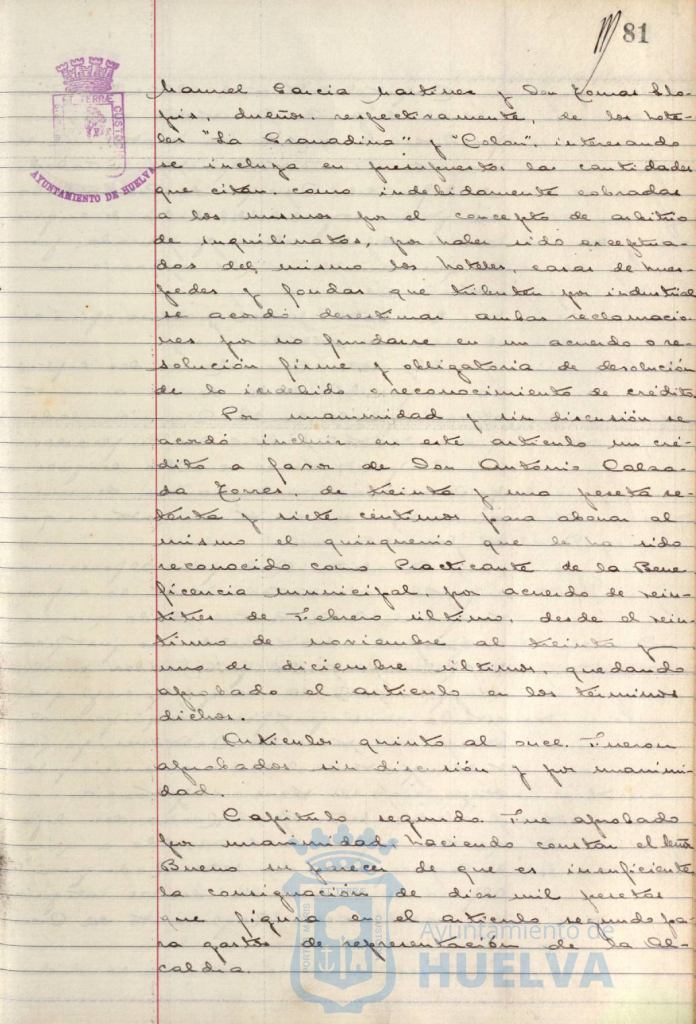 81
AYUNTAMIENTO DE HUELVA
Manuel García Martínez y Don Tomas Llo-
pis, dueños, respectivamente, de los hote-
les "La Granadina" y "Colon", interesando
se incluya en presupuestos las cantidades
que citan, como indebidamente cobradas
a los mismos por el concepto de arbitrio
de inquilinatos, por haber sido exceptua-
dos del mismo los hoteles, casas de hues-
pedes y fondas que tributen por industrial
se acordó desestimar ambas reclamacio-
nes por no fundarse en un acuerdo o re-
solución firme y obligatoria de devolución
de lo indebido o reconocimiento de crédito.
Por unanimidad y sin discusión se
acordó incluir en este artículo un cré-
dito a favor de Don Antonio Calza-
da Torres, de treinta y una peseta se-
tenta y siete céntimos para abonar al
mismo el quinquenio que le ha sido
reconocido como Practicante de la Bene-
ficencia municipal, por acuerdo de vein-
titres de Febrero último, desde el vein-
tiuno de noviembre al treinta y
uno de diciembre últimos, quedando
aprobado el artículo en los términos
dichos.
Artículos quinto al once. Fueron
aprobados sin discusión y por unanimi-
dad.
Capítulo segundo. Fue aprobado
por unanimidad, haciendo constar el señor
Bueno su parecer de que es insuficiente
la consignación de diez mil pesetas
que figura en el artículo segundo pa-
ra gastos de representación de la Al-
caldía.
Ayuntamiento de
HUELVA